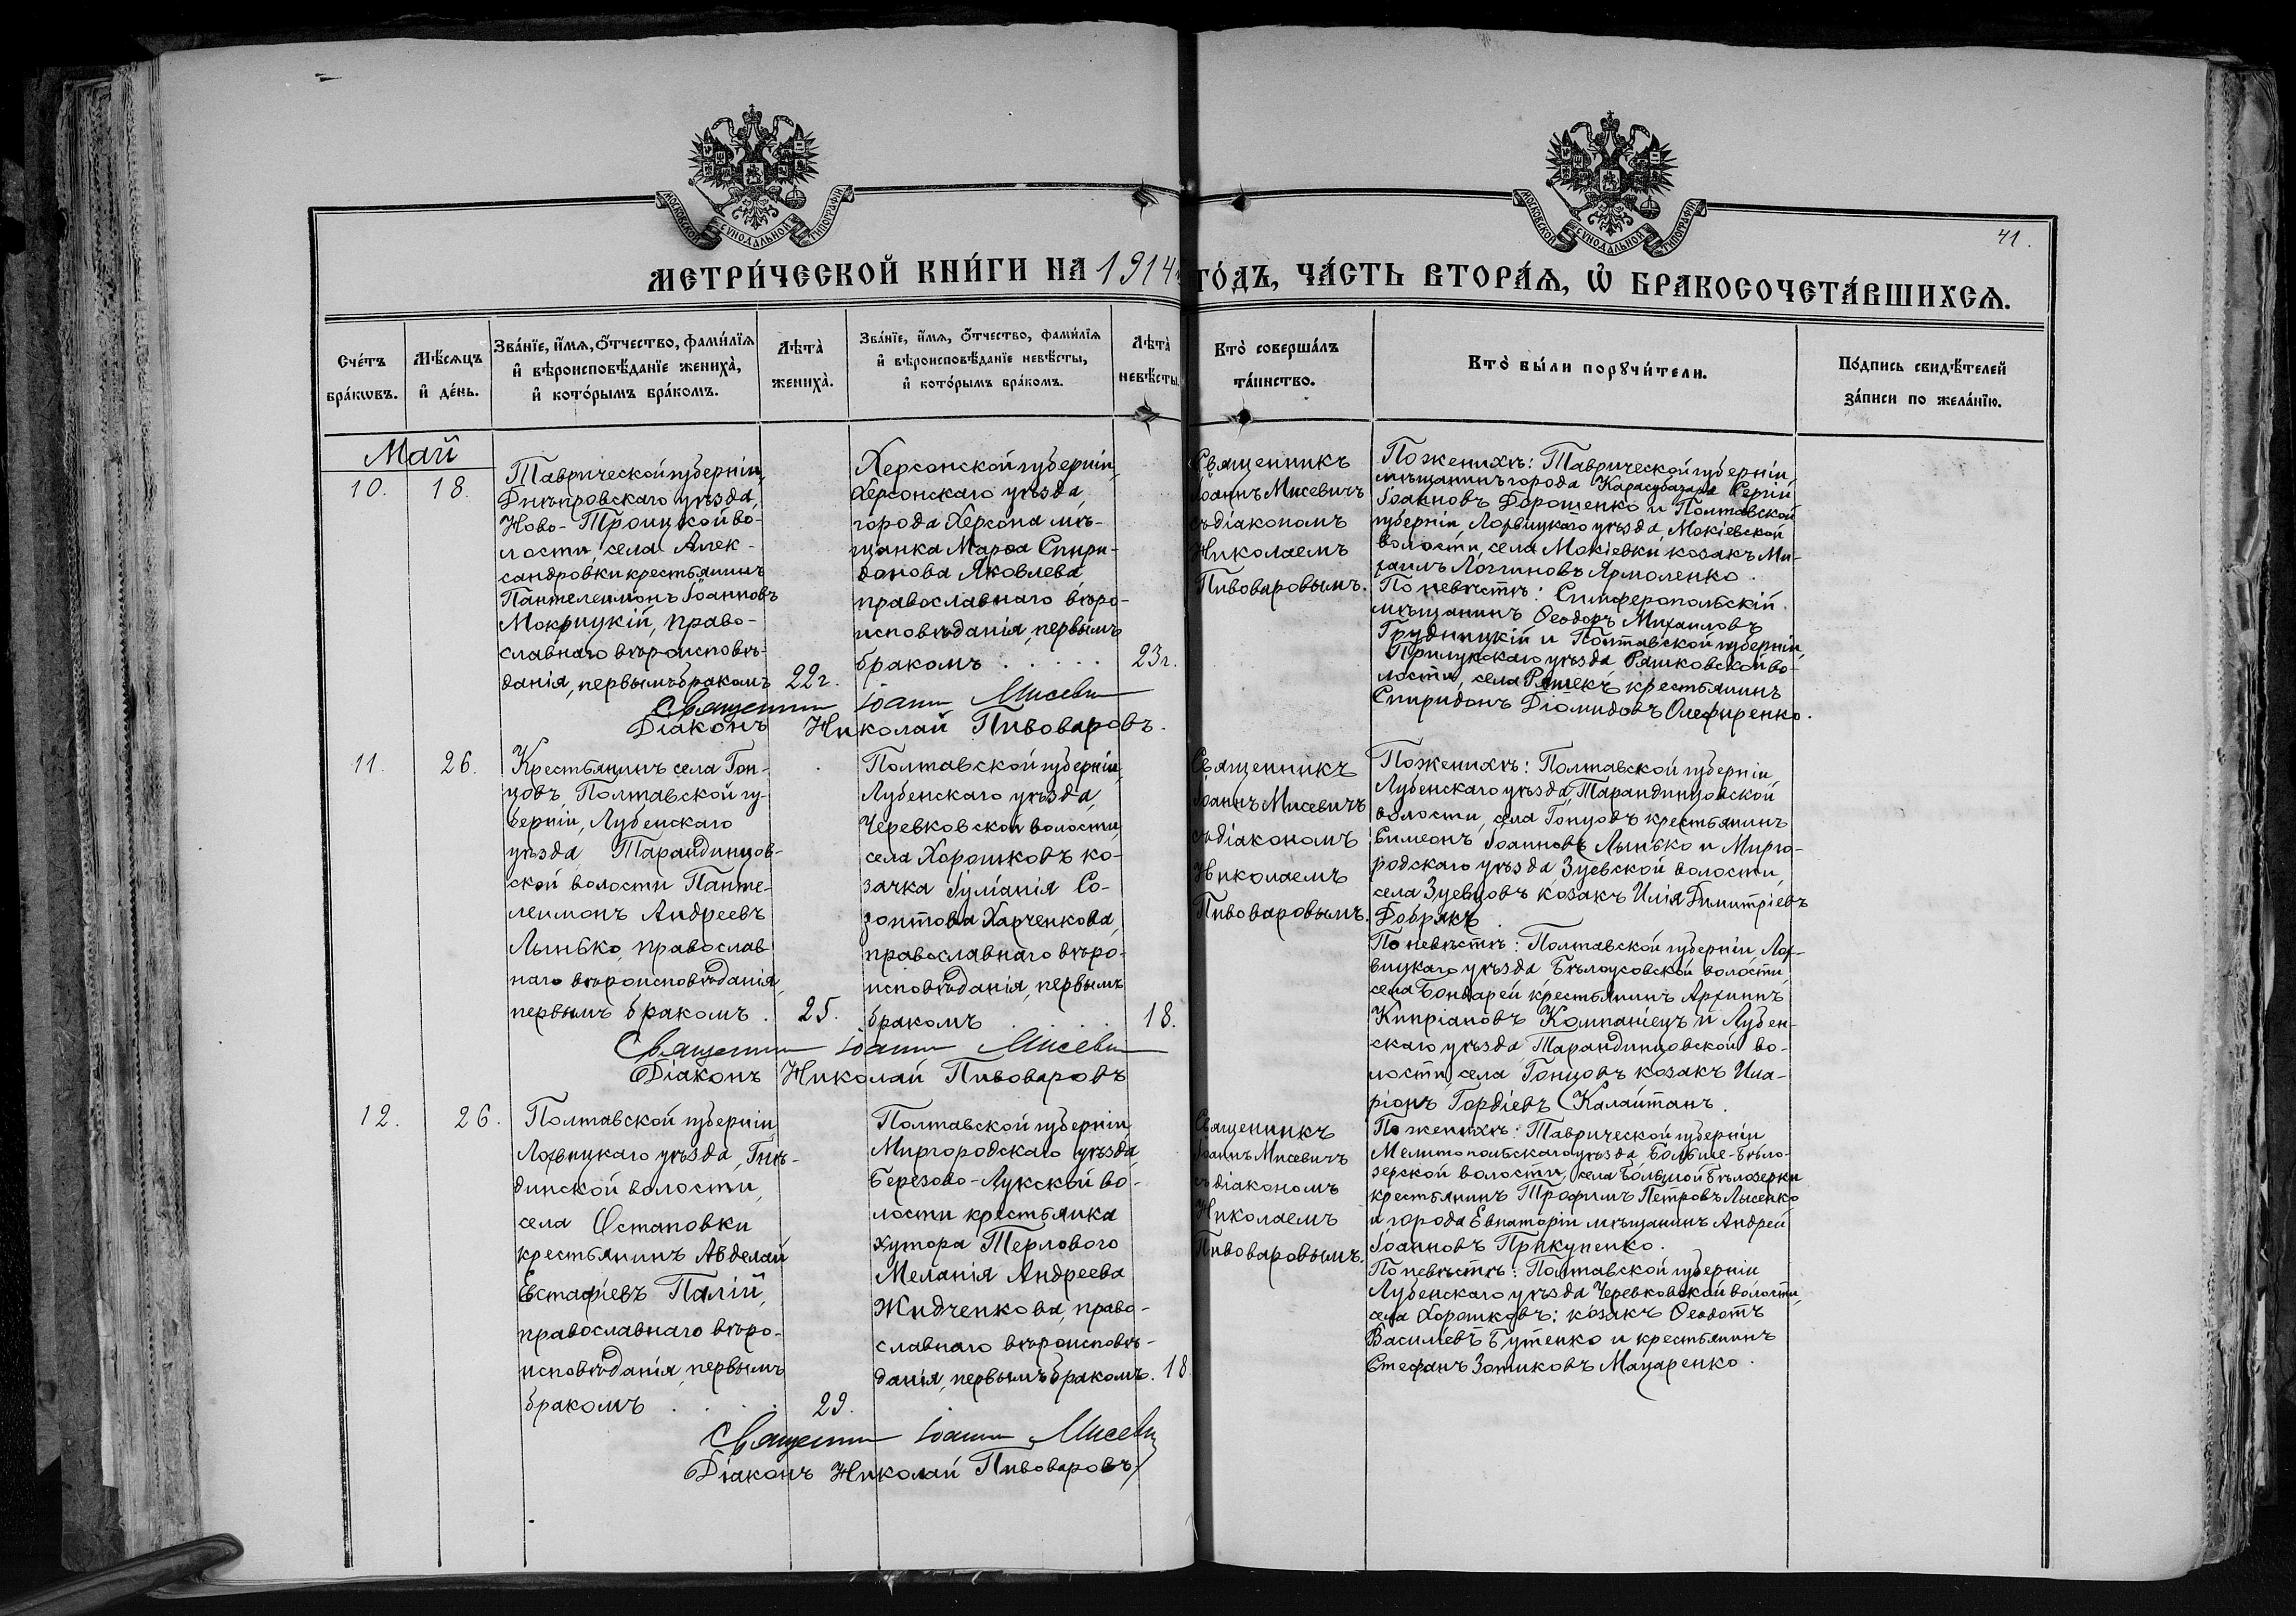 МОСКОВСКОЙ СѴНОДАЛЬНОЙ ТИПОГРАФІИ
МОСКОВСКОЙ СѴНОДАЛЬНОЙ ТИПОГРАФІИ
41.
МЕТРИ́ЧЕСКОЙ КНИ́ГИ НА 1914 ГО́ДЪ, ЧА́СТЬ ВТОРА́Ѧ, Ѡ҆ БРАКОСОЧЕТА́ВШИХСѦ.
Сче́тъ бра́кѡвъ.
Мѣ́сяцъ и҆ де́нь.
Зва́нїе, и҆́мя, ѻ҆́тчество, фами́лїя
и҆ вѣроисповѣ́данїе жениха̀,
и҆ кото́рымъ бра́комъ.
Лѣта̀ жениха̀.
Зва́нїе, и҆́мя, ѻ҆́тчество, фами́лїя
и҆ вѣроисповѣ́данїе невѣ́сты,
и҆ кото́рымъ бра́комъ.
Лѣта̀ невѣ́сты.
Кто̀ соверша́лъ
та́инство.
Кто̀ бы́ли порꙋчи́тели.
По́дпись свидѣ́телей
за́писи по жела́нїю.
Май
10.
18.
Таврической губерніи,
Днѣпровскаго уѣзда,
Ново-Троицкой во-
лости села Алек-
сандровки крестьянинъ
Пантелеимонъ Іоанновъ
Мокрицкій, право-
славнаго вѣроисповѣ-
данія, первымъ бракомъ
22 г.
Херсонской губерніи,
Херсонскаго уѣзда,
города Херсона мѣ-
щанка Марѳа Спири-
донова Яковлева,
православнаго вѣро-
исповѣданія, первымъ
бракомъ . . . . .
23 г.
Священникъ
Іоаннъ Мисевичъ
съ діакономъ
Николаемъ
Пивоваровымъ.
По женихѣ: Таврической губерніи,
мѣщанинъ города Карасубазара Сергій
Іоанновъ Дорошенко и Полтавской
губерніи, Лохвицкаго уѣзда, Мокіевской
волости, села Мокіевки козакъ Ми-
хаилъ Логгиновъ Ярмоленко.
По невѣстѣ: Симферопольскій
мѣщанинъ Ѳеодоръ Михаиловъ
Грудницкій и Полтавской губерніи,
Прилукскаго уѣзда Ряшковской во-
лости, села Ряшекъ крестьянинъ
Спиридонъ Діомидовъ Олефиренко.
Священникъ Іоаннъ Мисевичъ
Діаконъ Николай Пивоваровъ.
11.
26.
Крестьянинъ села Гон-
цовъ, Полтавской гу-
берніи, Лубенскаго
уѣзда Тарандинцов-
ской волости Панте-
леимонъ Андреевъ
Лынько, православ
наго вѣроисповѣданія,
первымъ бракомъ .
25.
Полтавской губерніи,
Лубенскаго уѣзда,
Черевковской волости,
села Хорошковъ ко-
зачка Іуліанія Со-
зонтова Харченкова,
православнаго вѣро-
исповѣданія, первымъ
бракомъ . . . .
18.
Священникъ
Іоаннъ Мисевичъ
съ діакономъ
Николаемъ
Пивоваровымъ.
По женихѣ: Полтавской губерніи,
Лубенскаго уѣзда, Тарандинцовской
волости, села Гонцовъ крестьянинъ
Симеонъ Іоанновъ Лынько и Мирго-
родскаго уѣзда, Зуевской волости,
села Зуевцовъ козакъ Илія Димитріевъ
Добрякъ.
По невѣстѣ: Полтавской губерніи, Лох-
вицкаго уѣзда Бѣлоусовской волости
села Бондарей крестьянинъ Архиппъ
Кипріановъ Компаніецъ и Лубен-
скаго уѣзда, Тарандинцовской во-
лости, села Гонцовъ козакъ Ила-
ріонъ Гордіевъ Калайтанъ.
Священникъ Іоаннъ Мисевичъ
Діаконъ Николай Пивоваровъ
12.
26.
Полтавской губерніи
Лохвицкаго уѣзда,
динской волости,
села Остаповки
крестьянинъ Авделай
Евстафіевъ Палій,
православнаго вѣро-
исповѣданія, первымъ
бракомъ . . . .
29.
Полтавской губерніи
Миргородскаго уѣзда,
Березово-Лукской во-
лости крестьянка
хутора Терлового
Меланія Андреева
Жидченкова, право-
славнаго вѣроисповѣ-
данія, первымъ бракомъ.
18
Священникъ
Іоаннъ Мисевичъ
съ діакономъ
Николаемъ
Пивоваровымъ.
По женихѣ: Таврической губерніи
Мелитопольскаго уѣзда Больше-Бѣло-
зерской волости, села Большой Бѣлозерки
крестьянинъ Трофимъ Петровъ Лысенко
и города Евпаторіи мѣщанинъ Андрей
Іоанновъ Прикупенко.
По невѣстѣ: Полтавской губерніи
Лубенскаго уѣзда Черевковской волости,
села Хорошковъ: козакъ Ѳеодотъ
Василіевъ Бутенко и крестьянинъ
Стефанъ Зотиковъ Мацаренко.
Священникъ Іоаннъ Мисевичъ
Діаконъ Николай Пивоваровъ